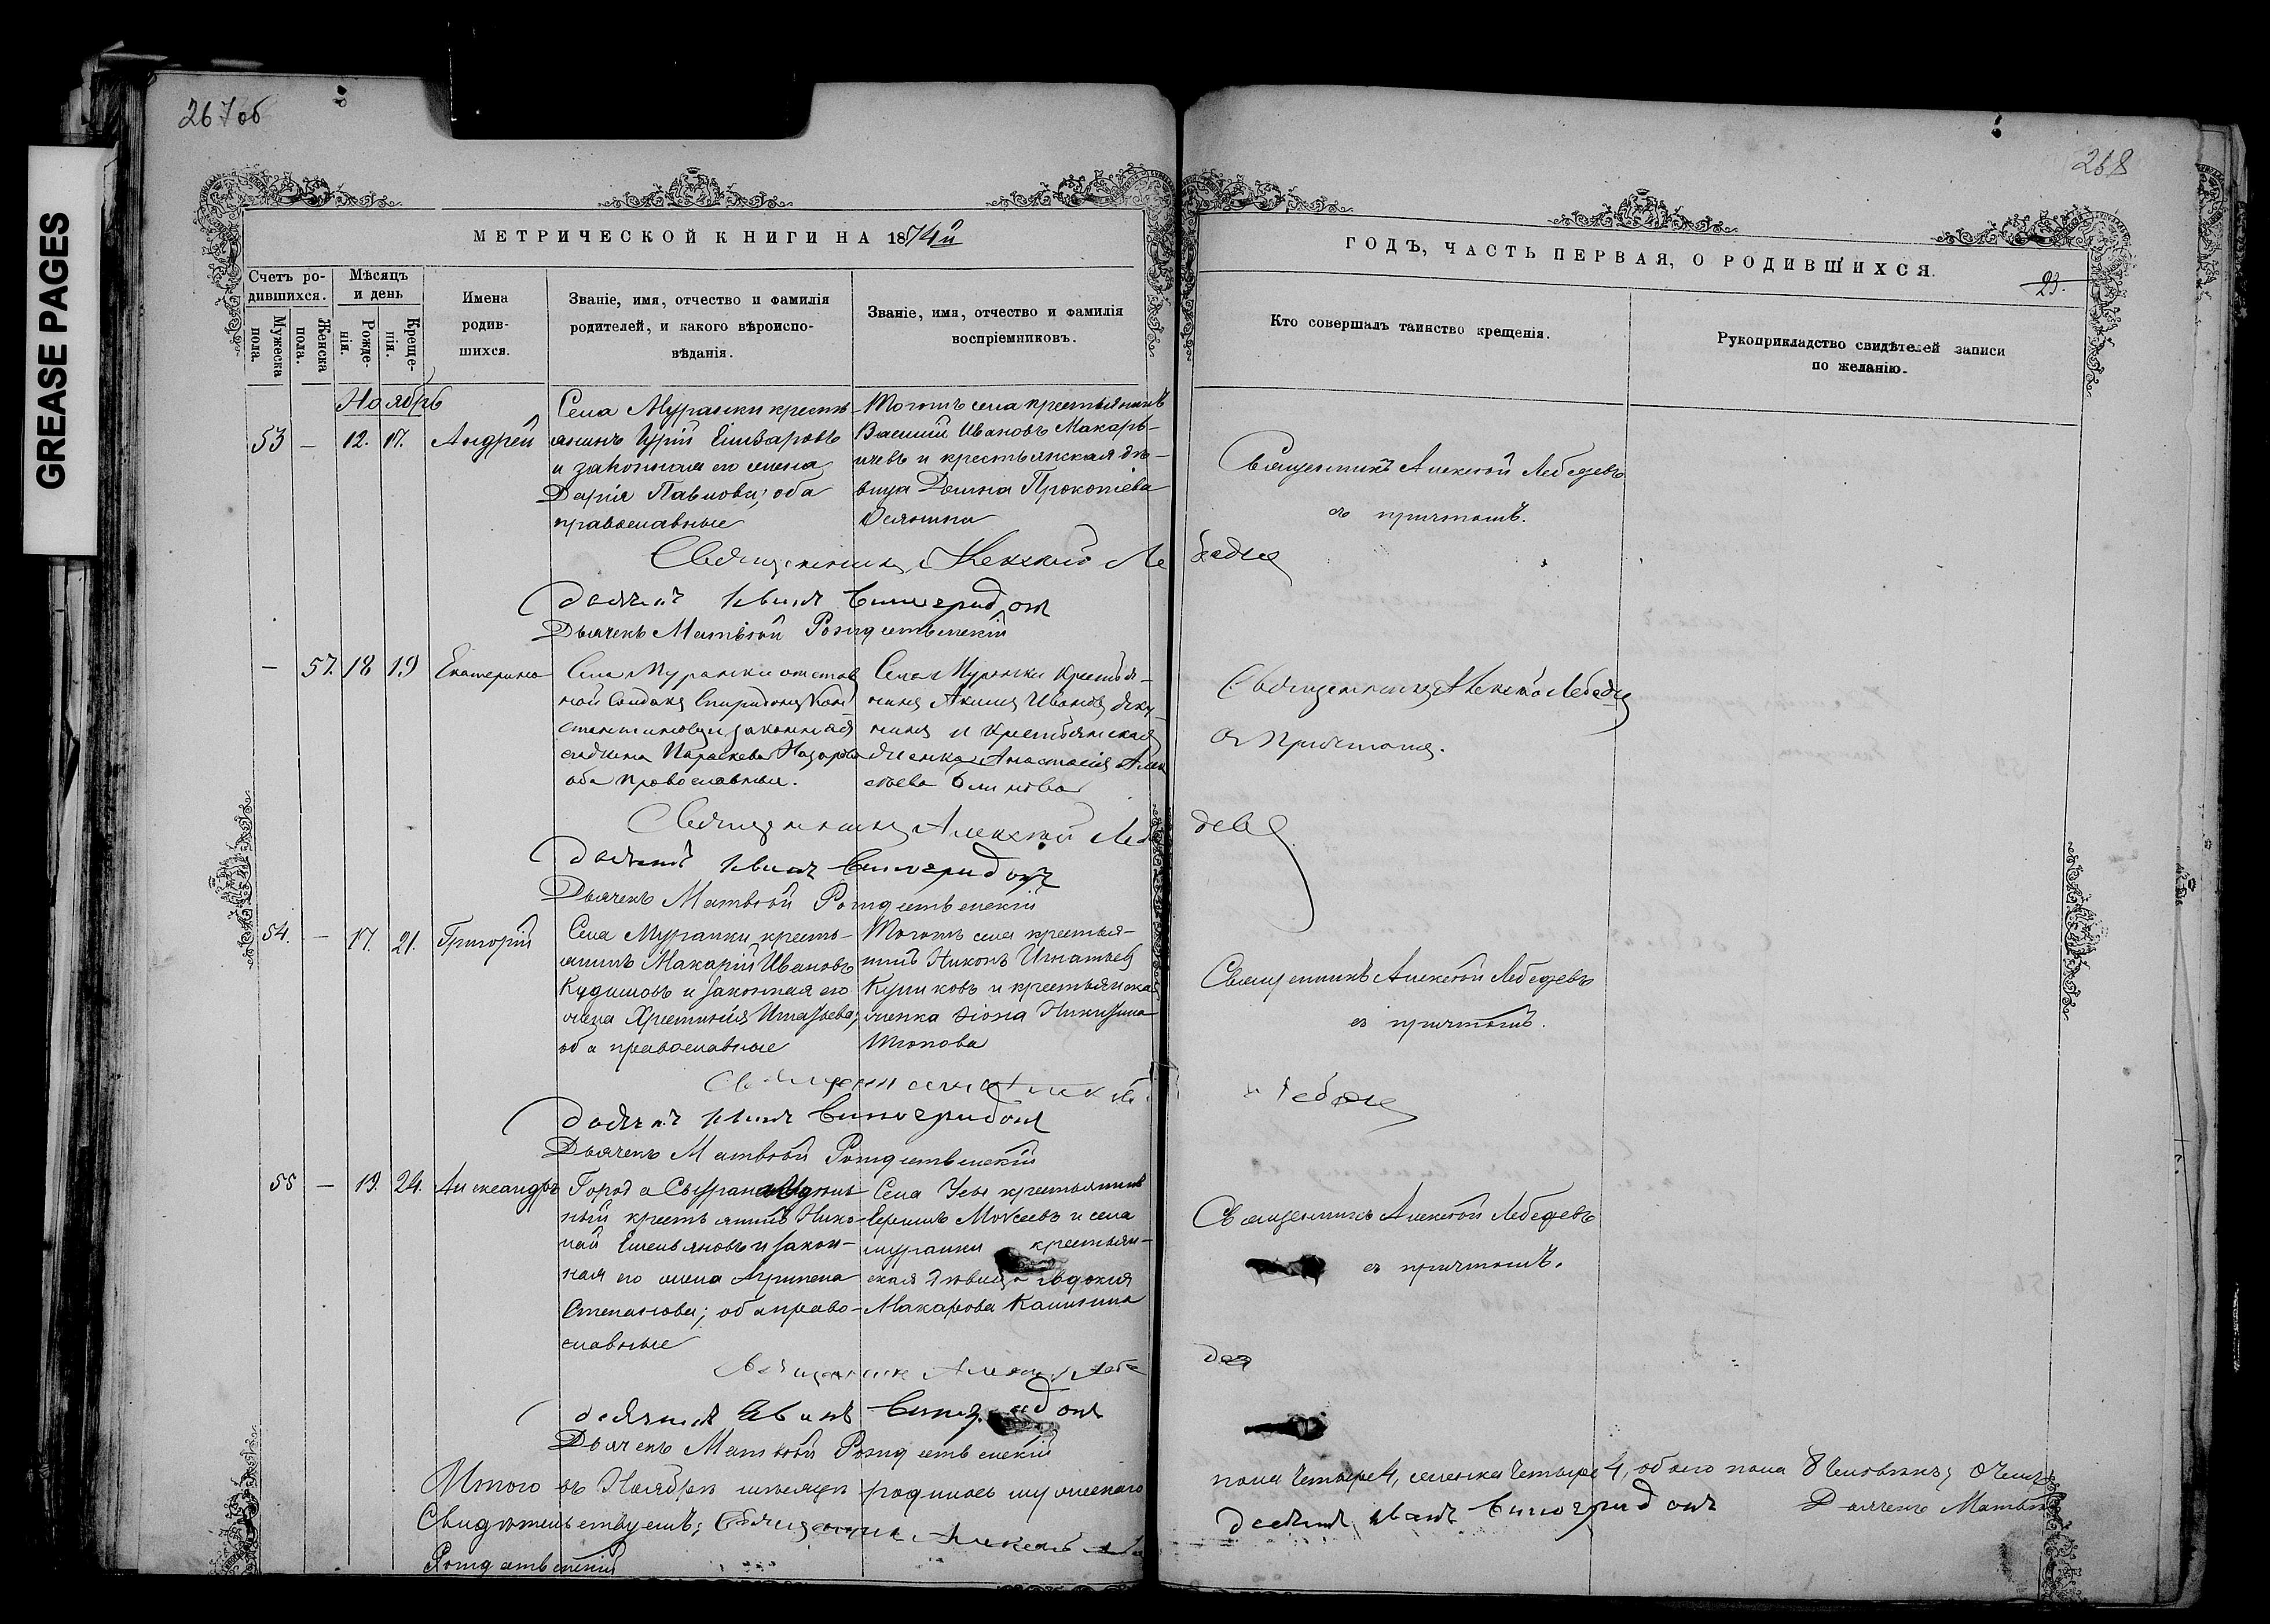 GREASE PAGES
267 об
268
МЕТРИЧЕСКОЙ КНИГИ НА 1874й
ГОДЪ, ЧАСТЬ ПЕРВАЯ, О РОДИВШИХСЯ.
23.
Счетъ родившихся.
Мужеска пола.
Женска пола.
Мѣсяцъ и день
Рожденія.
Крещенія.
Имена родившихся.
Званіе, имя, отчество и фамилія
родителей, и какого вѣроиспо-
вѣданія.
Званіе, имя, отчество и фамилія
воспріемниковъ.
Кто совершалъ таинство крещенія.
Рукоприкладство свидѣтелей записи
по желанію.
Ноябрь
53 — 12. 17. Андрей
Села Муранки кресть-
янинъ Гурій
и законная его жена
Дарія Павлова; оба
православные
Тогожъ села крестьянинъ
Василій Ивановъ Макарь-
ичевъ и крестьянская дѣ-
вица Домна Прокопіева
Священникъ Алексѣй Лебедевъ
съ причтомъ.
Священникъ Алексѣй Лебедевъ
Діаконъ Иванъ Виноградовъ
Дьячекъ Матвѣй Рождественскій
— 57. 18 19 Екатерина
Села Муранки отстав
ной Солдатъ Спиридонъ Кон
стантиновъ и законная
его жена Параскева Назарова
оба православные.
Села Муранки Крестья-
нинъ Акимъ Ивановъ
и Крестьянская
женка Анастасія Алек
сѣева Блинова
Священникъ Алексѣй Лебедевъ
съ Причтомъ.
Священникъ Алексѣй Лебедевъ
Діаконъ Иванъ Виноградовъ
Дьячекъ Матвѣй Рождественскій
54. — 17. 21. Григорій
Села Муранки кресть-
янинъ Макарій Ивановъ
Кудиновъ и законная его
жена Христинія Игнатьева;
оба православные
Тогожъ села крестья-
нинъ Никонъ Игнатьевъ
Куликовъ и крестьянская
женка
Священникъ Алексѣй Лебедевъ
съ причтомъ.
Священникъ Алексѣй Лебедевъ
Діаконъ Иванъ Виноградовъ
Дьячекъ Матвѣй Рождественскій
55 — 19. 24. Александръ
Города Сызрана
крестьянинъ Нико-
лай Емельяновъ и закон-
ная его жена Агрипена
Степанова; оба право-
славные
Села Усы крестьянинъ
Моисеевъ и села
муранки крестьян-
ская дѣвица Евдокия
Макарова Калинина
Священникъ Алексѣй Лебедевъ
съ причтомъ.
Священникъ Алексѣй Лебедевъ
Діаконъ Иванъ Виноградовъ
Дьячекъ Матвѣй Рождественскій
Итого въ Ноябрѣ мѣсяцѣ родилось мужескаго
пола четыре 4, женска четыре 4, обоего пола 8 человѣкъ; О чемъ
Свидѣтельствуемъ: Священникъ Алексѣй
Діаконъ Иванъ Виноградовъ Дьячекъ Матвѣй
Рождественскій